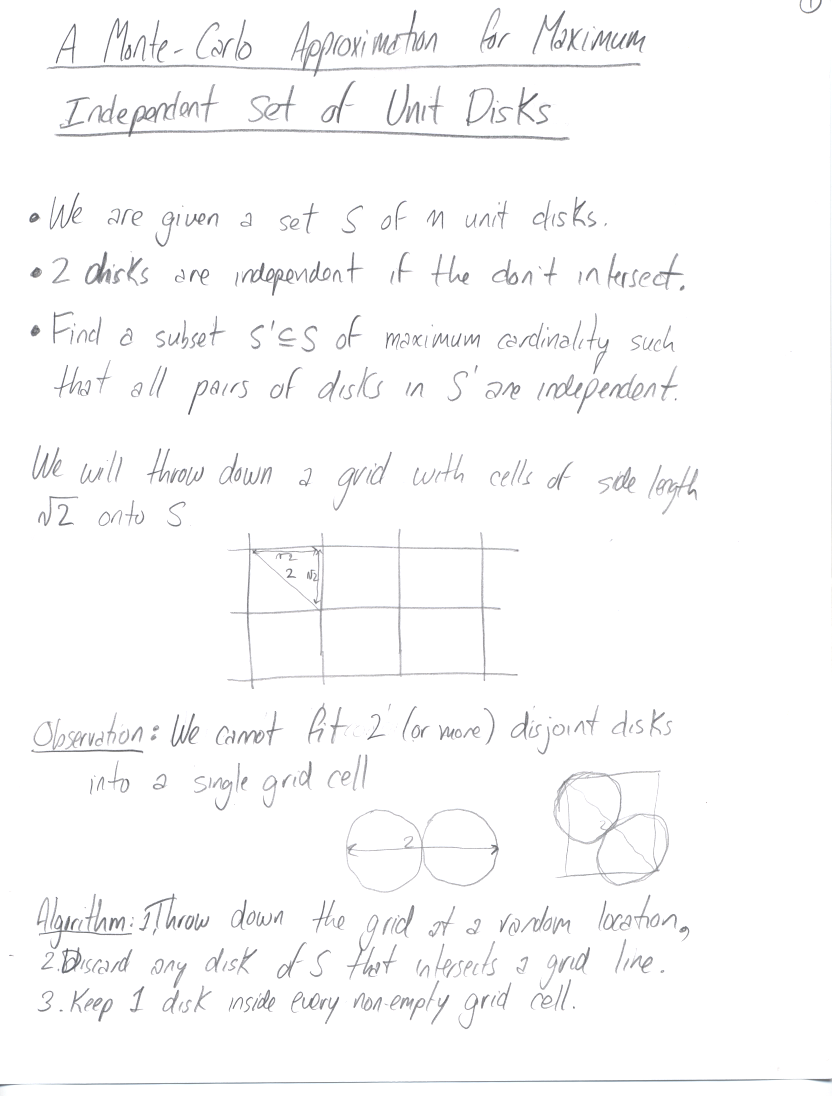 1
A Monte-Carlo Approximation for Maximum
Independent Set of Unit Disks
• We are given a set S of n unit disks.
• 2 disks are independent if the don't intersect.
• Find a subset S'⊆S of maximum cardinality such
that all pairs of disks in S' are independent.
We will throw down a grid with cells of side length
√2 onto S
√2
2 √2
Observation: We cannot fit 2 (or more) disjoint disks
into a single grid cell
2
2
Algorithm: 1. Throw down the grid at a random location,
2. Discard any disk of S that intersects a grid line.
3. Keep 1 disk inside every non-empty grid cell.